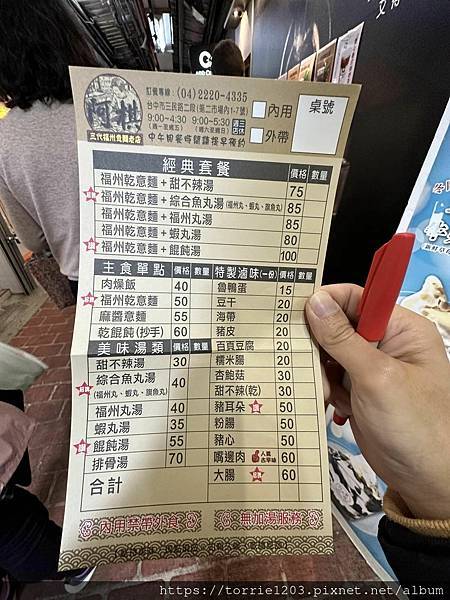 訂餐專線：(04)2220-4335
台中市三民路二段(第二市場內1-7號)
9:00-4:30 9:00-5:30
(週一至週五) (週六至週日)
週三店休
阿棋
三代福州意麵老店
內用
外帶
桌號
經典套餐 價格 數量
福州乾意麵+甜不辣湯 75
福州乾意麵+綜合魚丸湯(福州丸、蝦丸、旗魚丸) 85
福州乾意麵+福州丸湯 85
福州乾意麵+蝦丸湯 80
福州乾意麵+餛飩湯 100
主食單點 價格 數量
肉燥飯 40
福州乾意麵 50
麻醬意麵 55
乾餛飩(抄手) 60
美味湯類 價格 數量
甜不辣湯 30
綜合魚丸湯 40
(福州丸、蝦丸、旗魚丸)
福州丸湯 40
蝦丸湯 35
餛飩湯 55
排骨湯 70
合計
特製滷味(一份) 價格 數量
魯鴨蛋 15
豆干 20
海帶 20
豬皮 20
百頁豆腐 20
糯米腸 20
杏鮑菇 30
甜不辣(乾) 30
豬耳朵 50
粉腸 50
豬心 50
嘴邊肉 60
大腸 60
內用禁帶外食
無加湯服務
https://torrie1203.pixnet.net/album